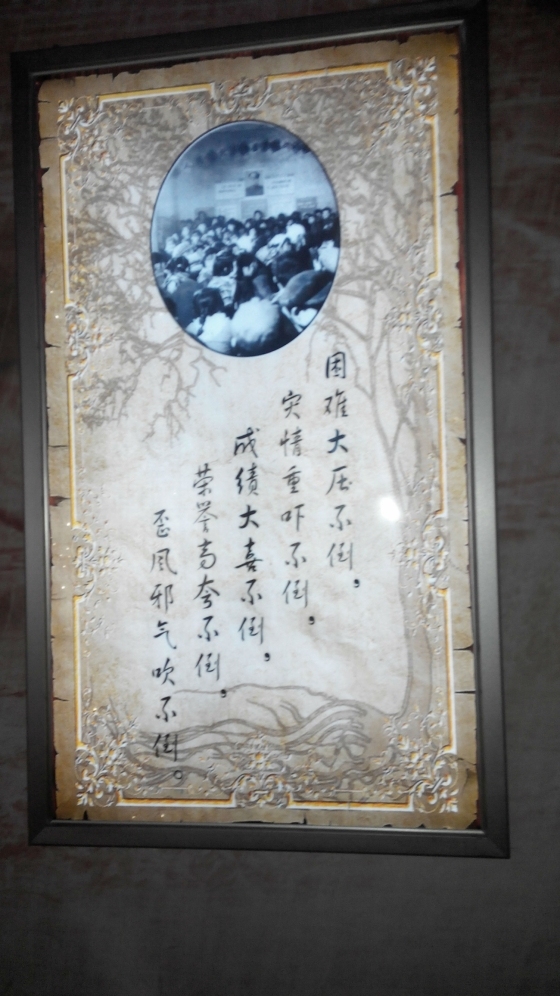 困难大压不倒，
灾情重吓不倒，
成绩大喜不倒，
荣誉高夸不倒，
歪风邪气吹不倒。